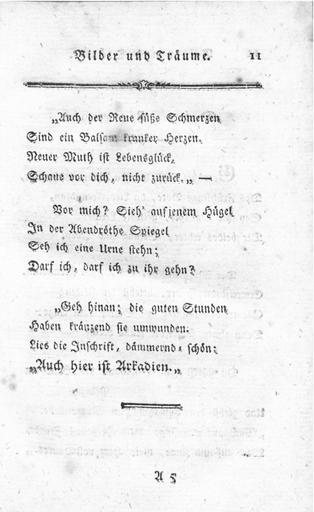 Bilder und Träume. 11
„Auch der Reue süße Schmerzen
Sind ein Balsam kranker Herzen.
Neuer Muth ist Lebensglück,
Schaue vor dich, nicht zurück.„ —
Vor mich? Sieh' auf jenem Hügel
In der Abendröthe Spiegel
Seh ich eine Urne stehn;
Darf ich, darf ich zu ihr gehn?
„Geh hinan; die guten Stunden
Haben kränzend sie umwunden.
Lies die Inschrift, dämmernd-schön:
„Auch hier ist Arkadien.„
A 5